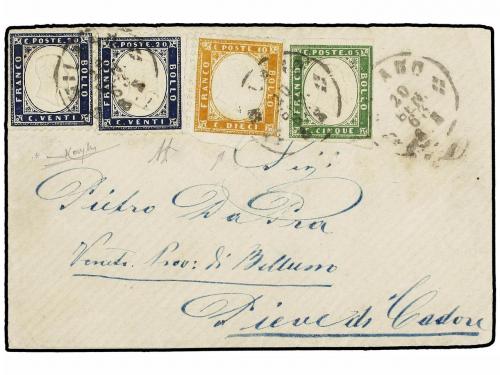 C. POSTE. 20
FRANCO
BOLLO
C. VENTI
C. POSTE. 20
FRANCO
BOLLO
C. VENTI
C. POSTE. 10
FRANCO
BOLLO
C. DIECI
C. POSTE. 05
FRANCO
BOLLO
C. CINQUE
20
Sig.
Pietro Da Pra
Veneto Prov: di Belluno
Pieve di Cadore